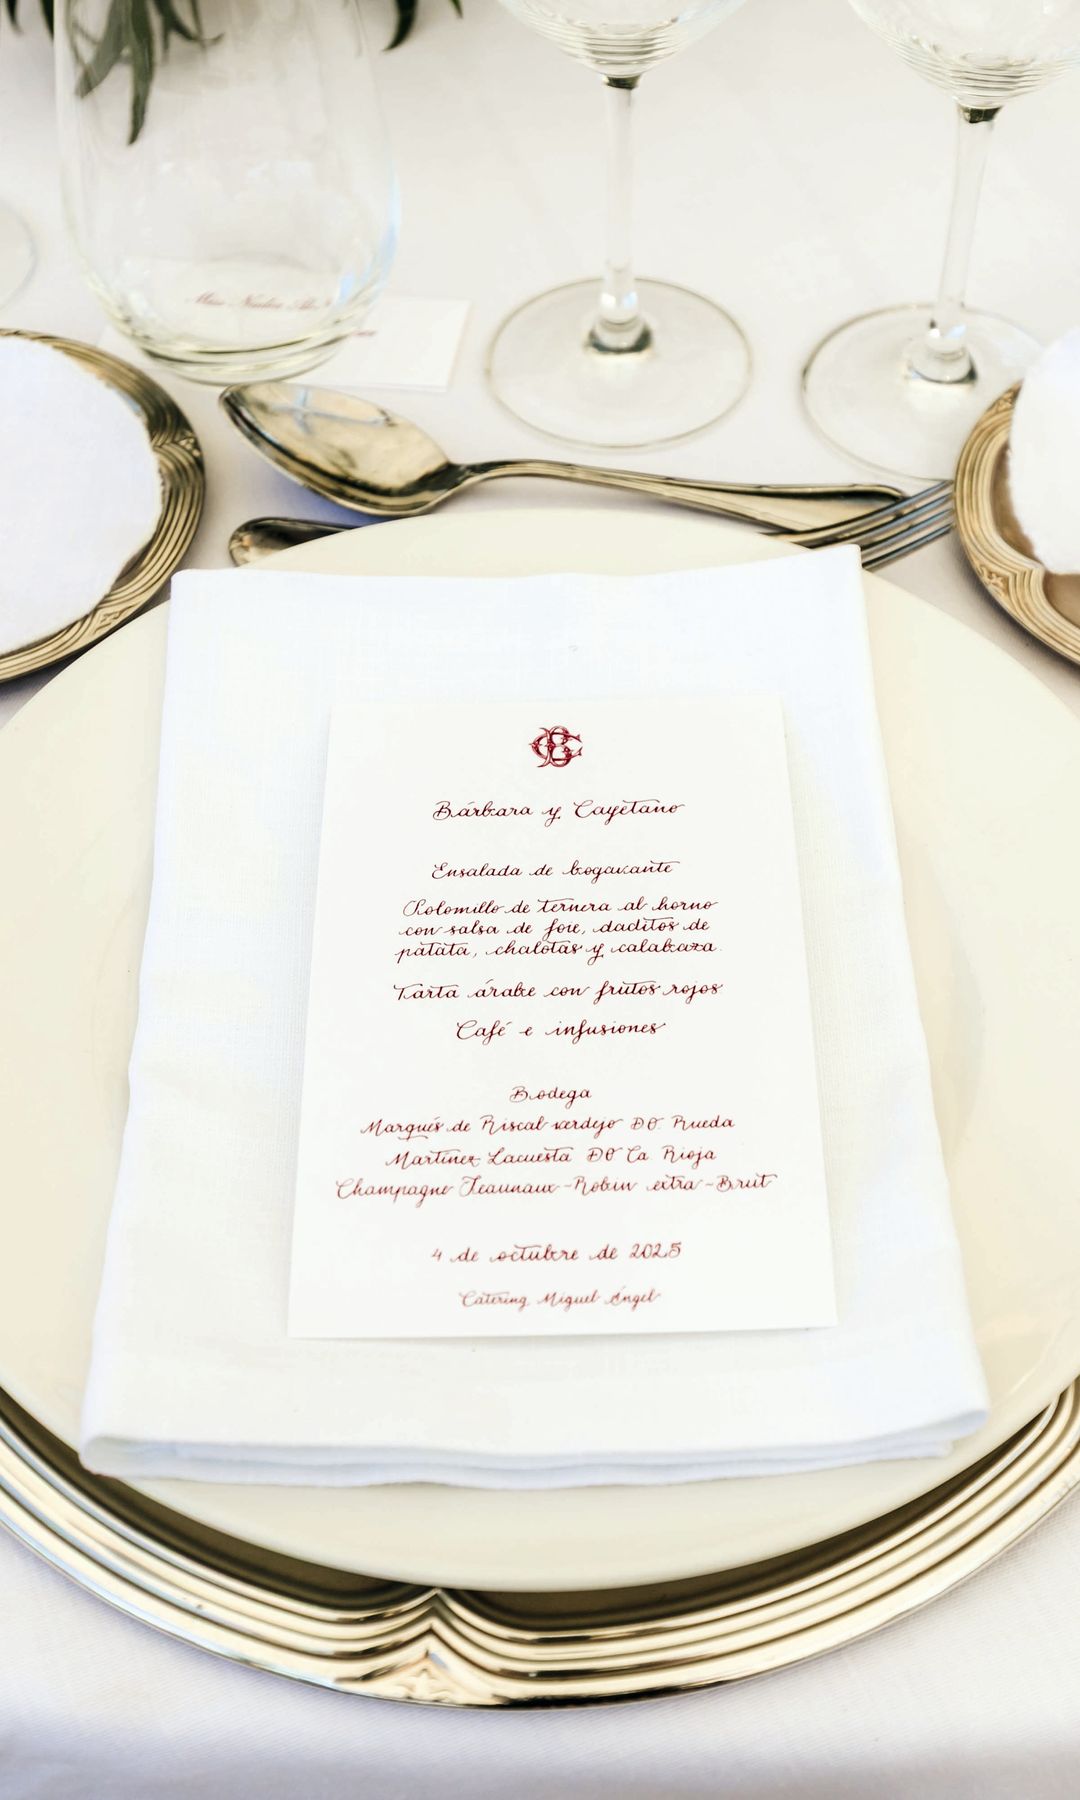 Bárbara y Cayetano
Ensalada de bogavante
Solomillo de ternera al horno
con salsa de foie, daditos de
patata, chalotas y calabaza.
Tarta árabe con frutos rojos
Café e infusiones
Bodega
Marqués de Riscal verdejo DO. Rueda
Martínez Lacuesta DO La Rioja
Champagne Jeaunaux-Robin extra-Brut
4 de octubre de 2025
Catering Miguel Ángel